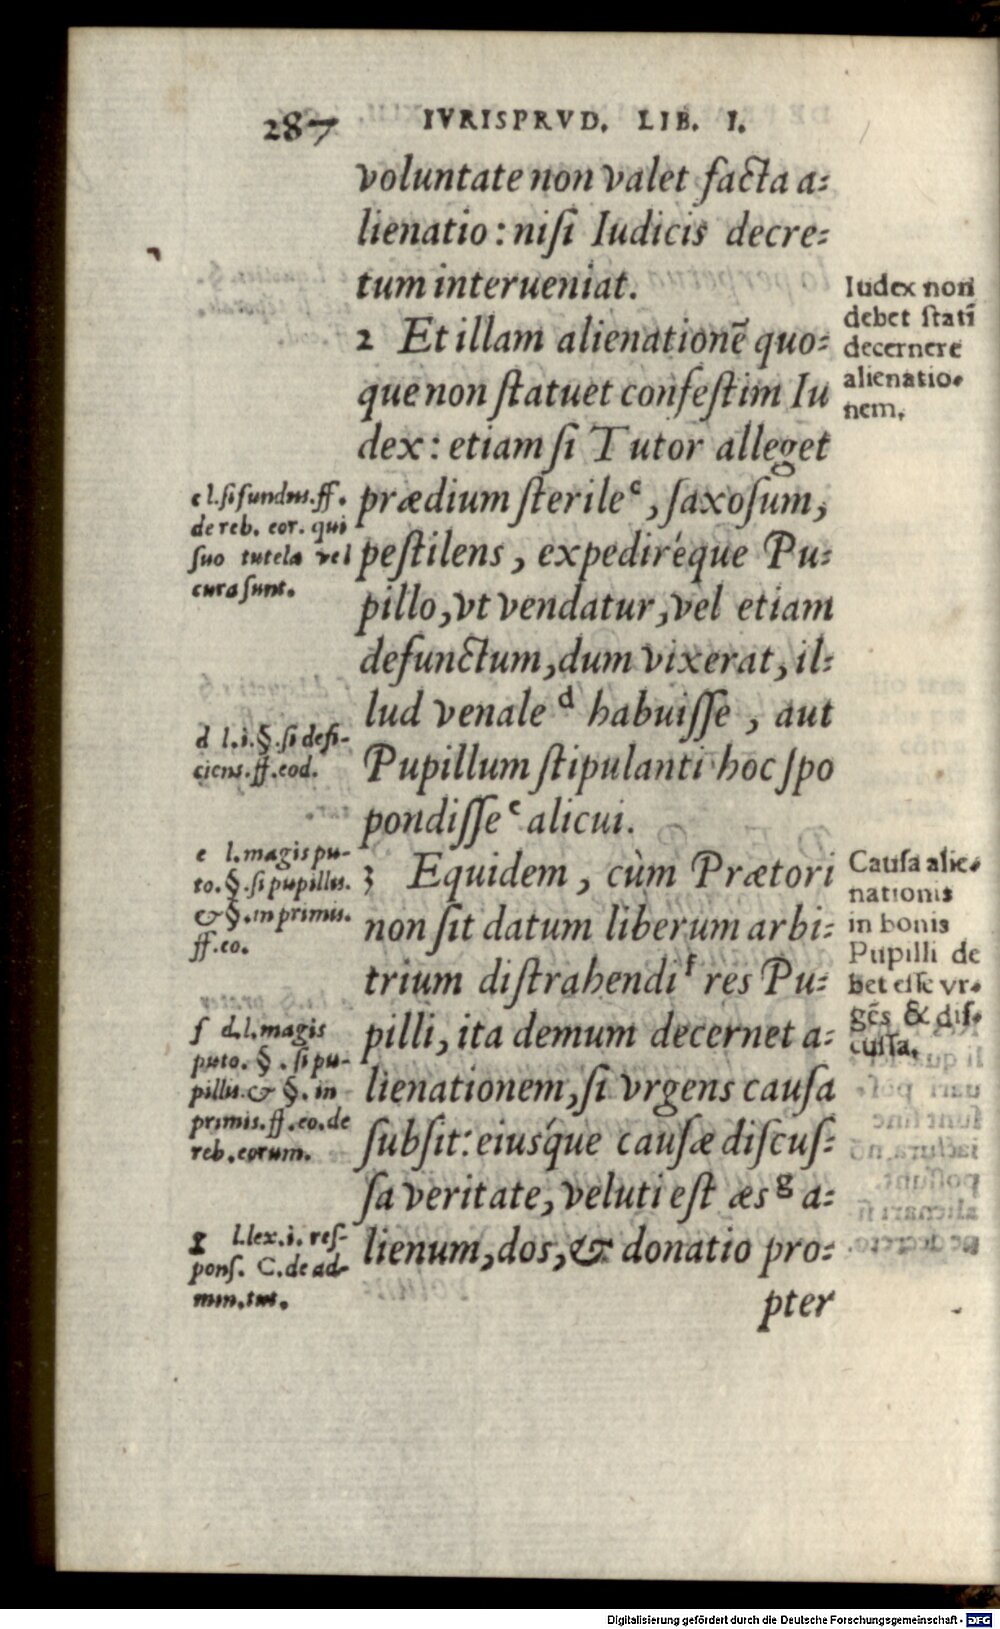 287 IVRISPRVD. LIB. I.
voluntate non valet facta a-
lienatio: nisi Iudicis decre-
tum interueniat.
2 Et illam alienationē quo-
que non statuet confestim Iu
dex: etiam si Tutor alleget
prædium sterile c, saxosum,
pestilens, expediréque Pu-
pillo, vt vendatur, vel etiam
defunctum, dum vixerat, il-
lud venale d habuisse, aut
Pupillum stipulanti hoc spo
pondisse e alicui.
3 Equidem, cùm Prætori
non sit datum liberum arbi-
trium distrahendi f res Pu-
pilli, ita demum decernet a-
lienationem, si vrgens causa
subsit: eiusq́ue causæ discus-
sa veritate, veluti est æs g a-
lienum, dos, & donatio pro-
pter
Iudex non
debet statī
decernere
alienatio-
nem.
Causa alie-
nationis
in bonis
Pupilli de
bet esse vr-
gēs & dis-
cussa.
c l. si fundus. ff.
de reb. eor. qui
suo tutela vel
cura sunt.
d l. i. §. si defi-
ciens. ff. eod.
e l. magis pu-
to. §. si pupillus.
& §. in primis.
ff. eo.
f d. l. magis
puto. §. si pu-
pillus. & §. in
primis. ff. eo. de
reb. eorum.
g l. lex. i. res-
pons. C. de ad-
min. tut.
Digitalisierung gefördert durch die Deutsche Forschungsgemeinschaft - DFG